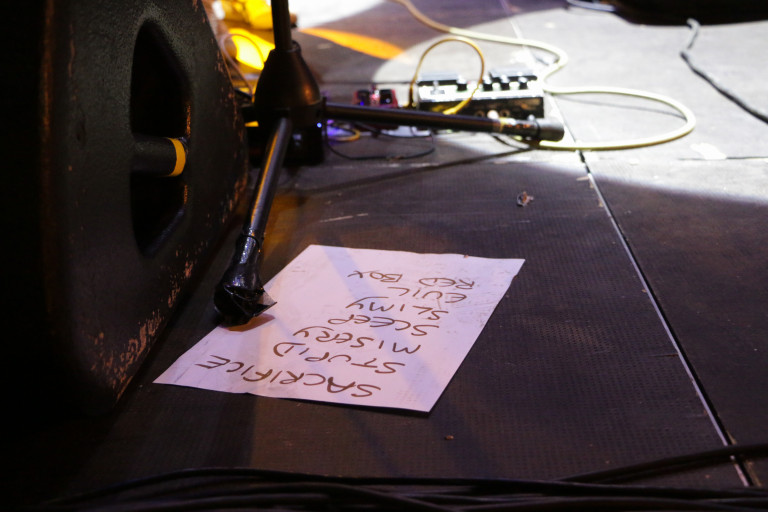 SACRIFICE
STUPID
MISERY
SLEEP
SLIMY
EVIL
RED BOX